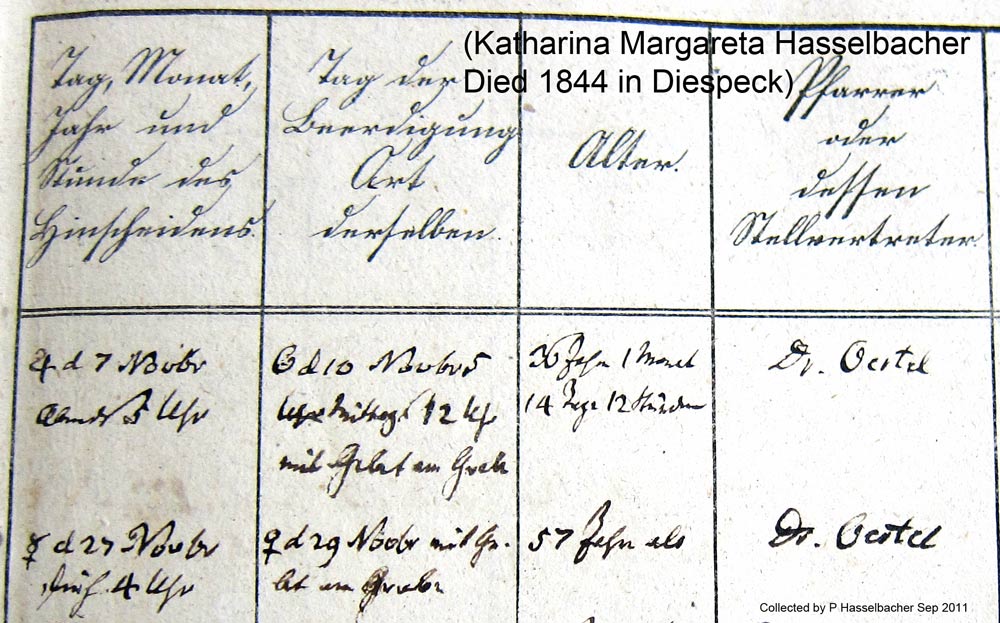 (Katharina Margareta Hasselbacher
Died 1844 in Diespeck)
Tag, Monat,
Jahr und
Stunde des
Hinscheidens.
Tag der
Beerdigung
Art
derselben.
Alter.
Pfarrer
oder
dessen
Stellvertreter.
♃ d 7 Novbr
Abends 5 Uhr
d 10 Novbrs
Mittags 12 Uhr
mit Gebet am Grabe
36 Jahr 1 Monat
14 Tage 12 Stunden
Dr. Oertel
☿ d 27 Novbr
früh 4 Uhr
♀ d 29 Novbr mit Ge-
bet am Grabe
57 Jahr alt
Dr. Oertel
Collected by P Hasselbacher Sep 2011